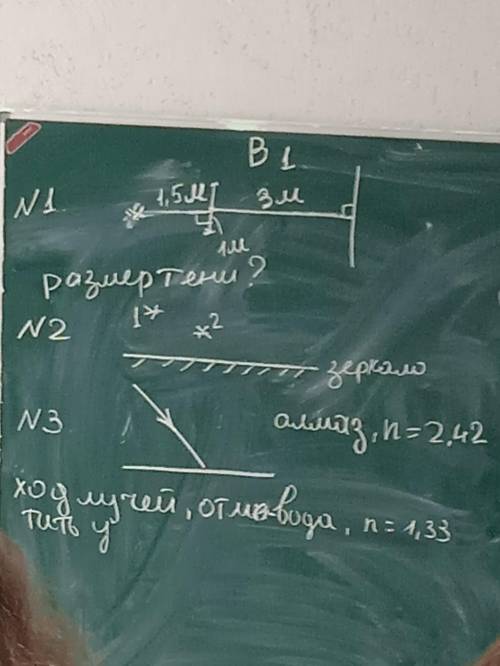 В 1
N1
1,5м 3м
1м
размер тени?
N2 1* *2
зеркало
N3
алмаз, n=2,42
ход лучей, отме-
вода, n=1,33
тить